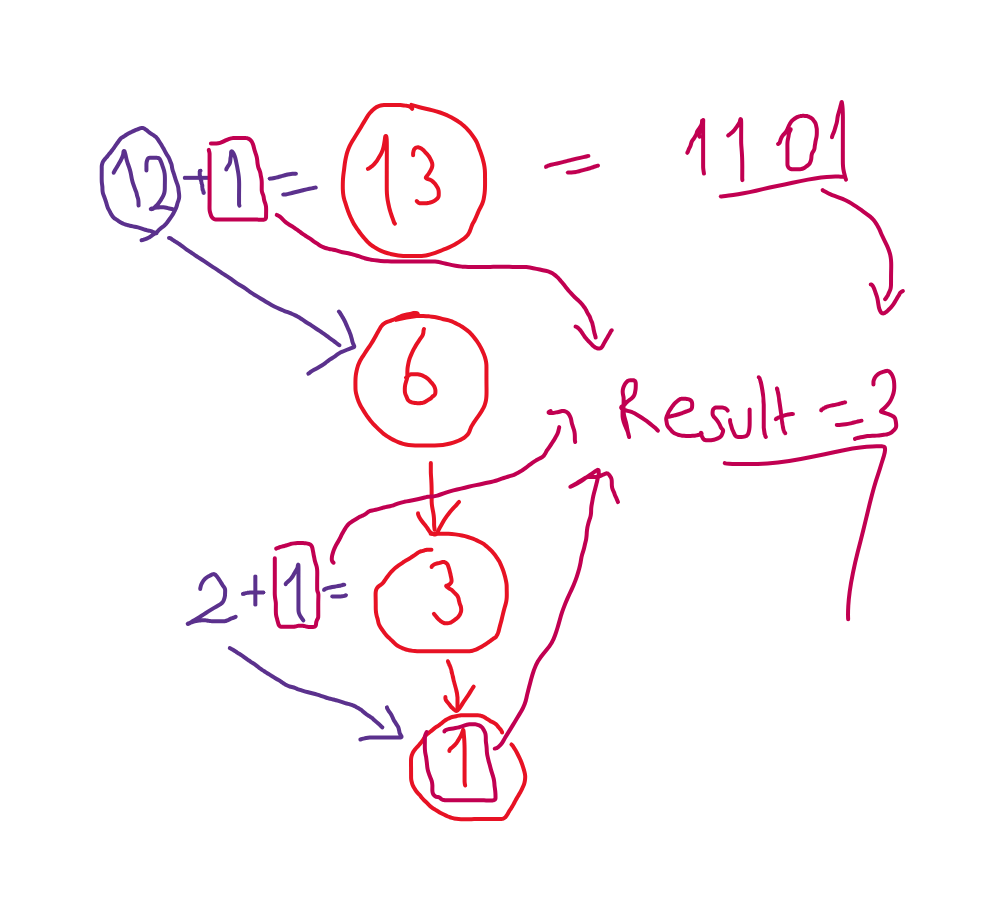 12 + 1 = 13 = 1101
6
Result = 3
2 + 1 = 3
1